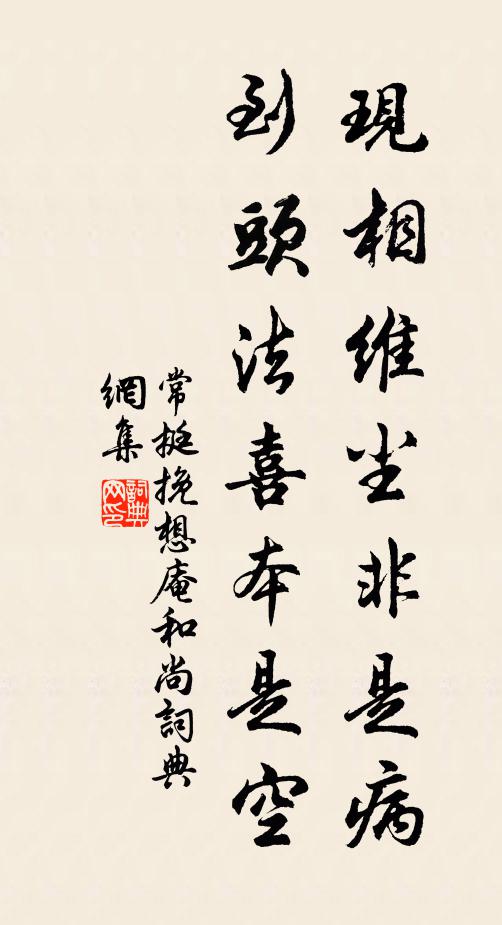 現相維尘非是病
到頭法喜本是空
常挺挽想庵和尚詞典
網集
詞典
网印